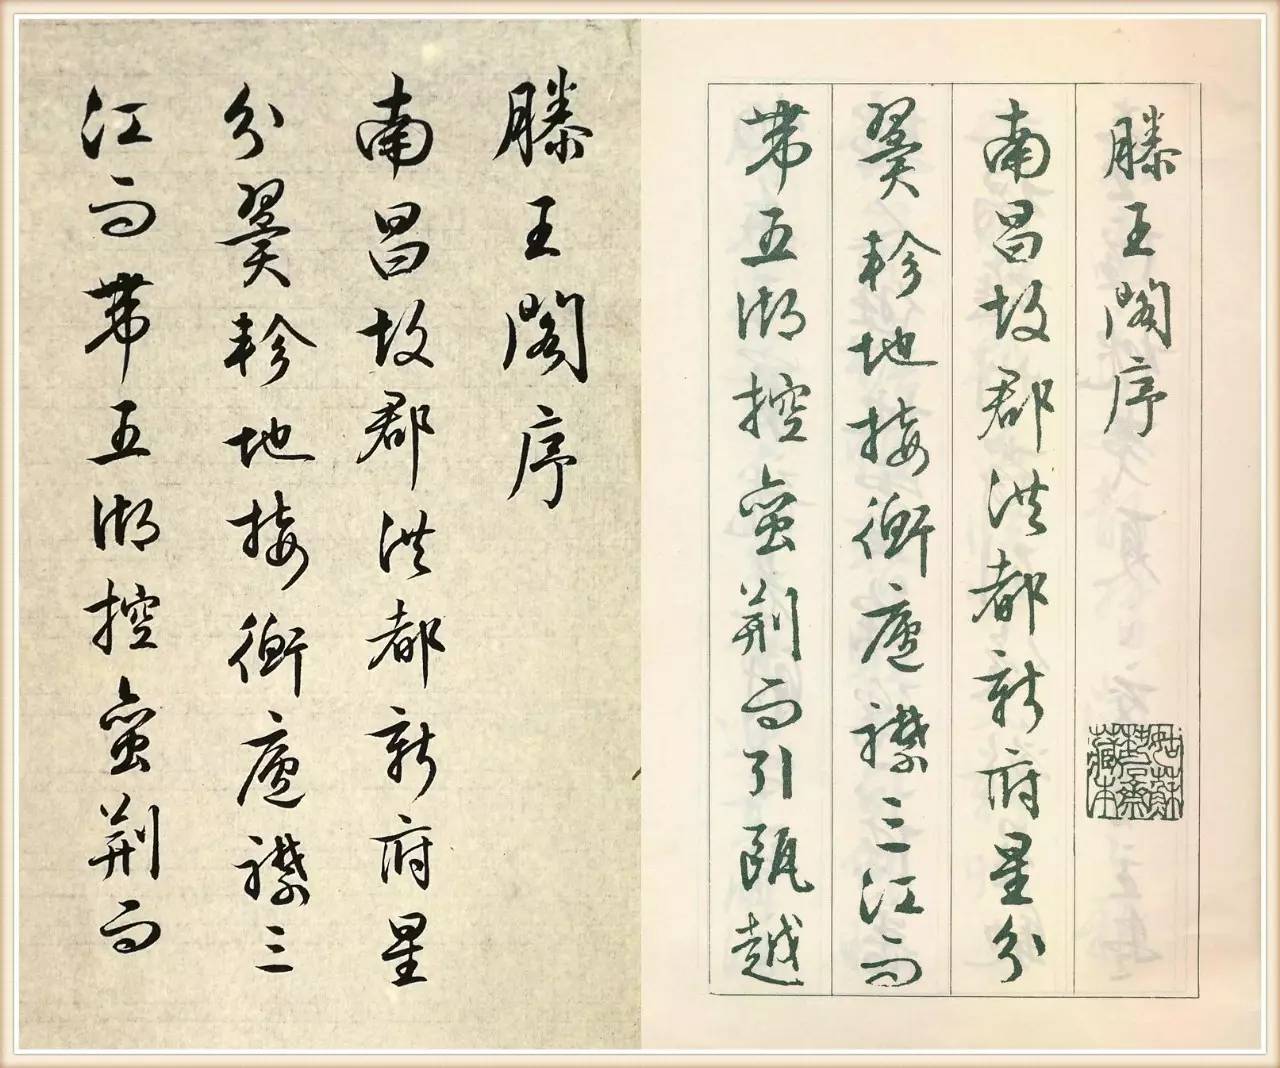 滕王閣序
南昌故郡洪都新府星
分翼軫地接衡廬襟三
江而帶五湖控蠻荊而
滕王閣序
南昌故郡洪都新府星分
翼軫地接衡廬襟三江而
帶五湖控蠻荊而引甌越
姑蘇
藏本